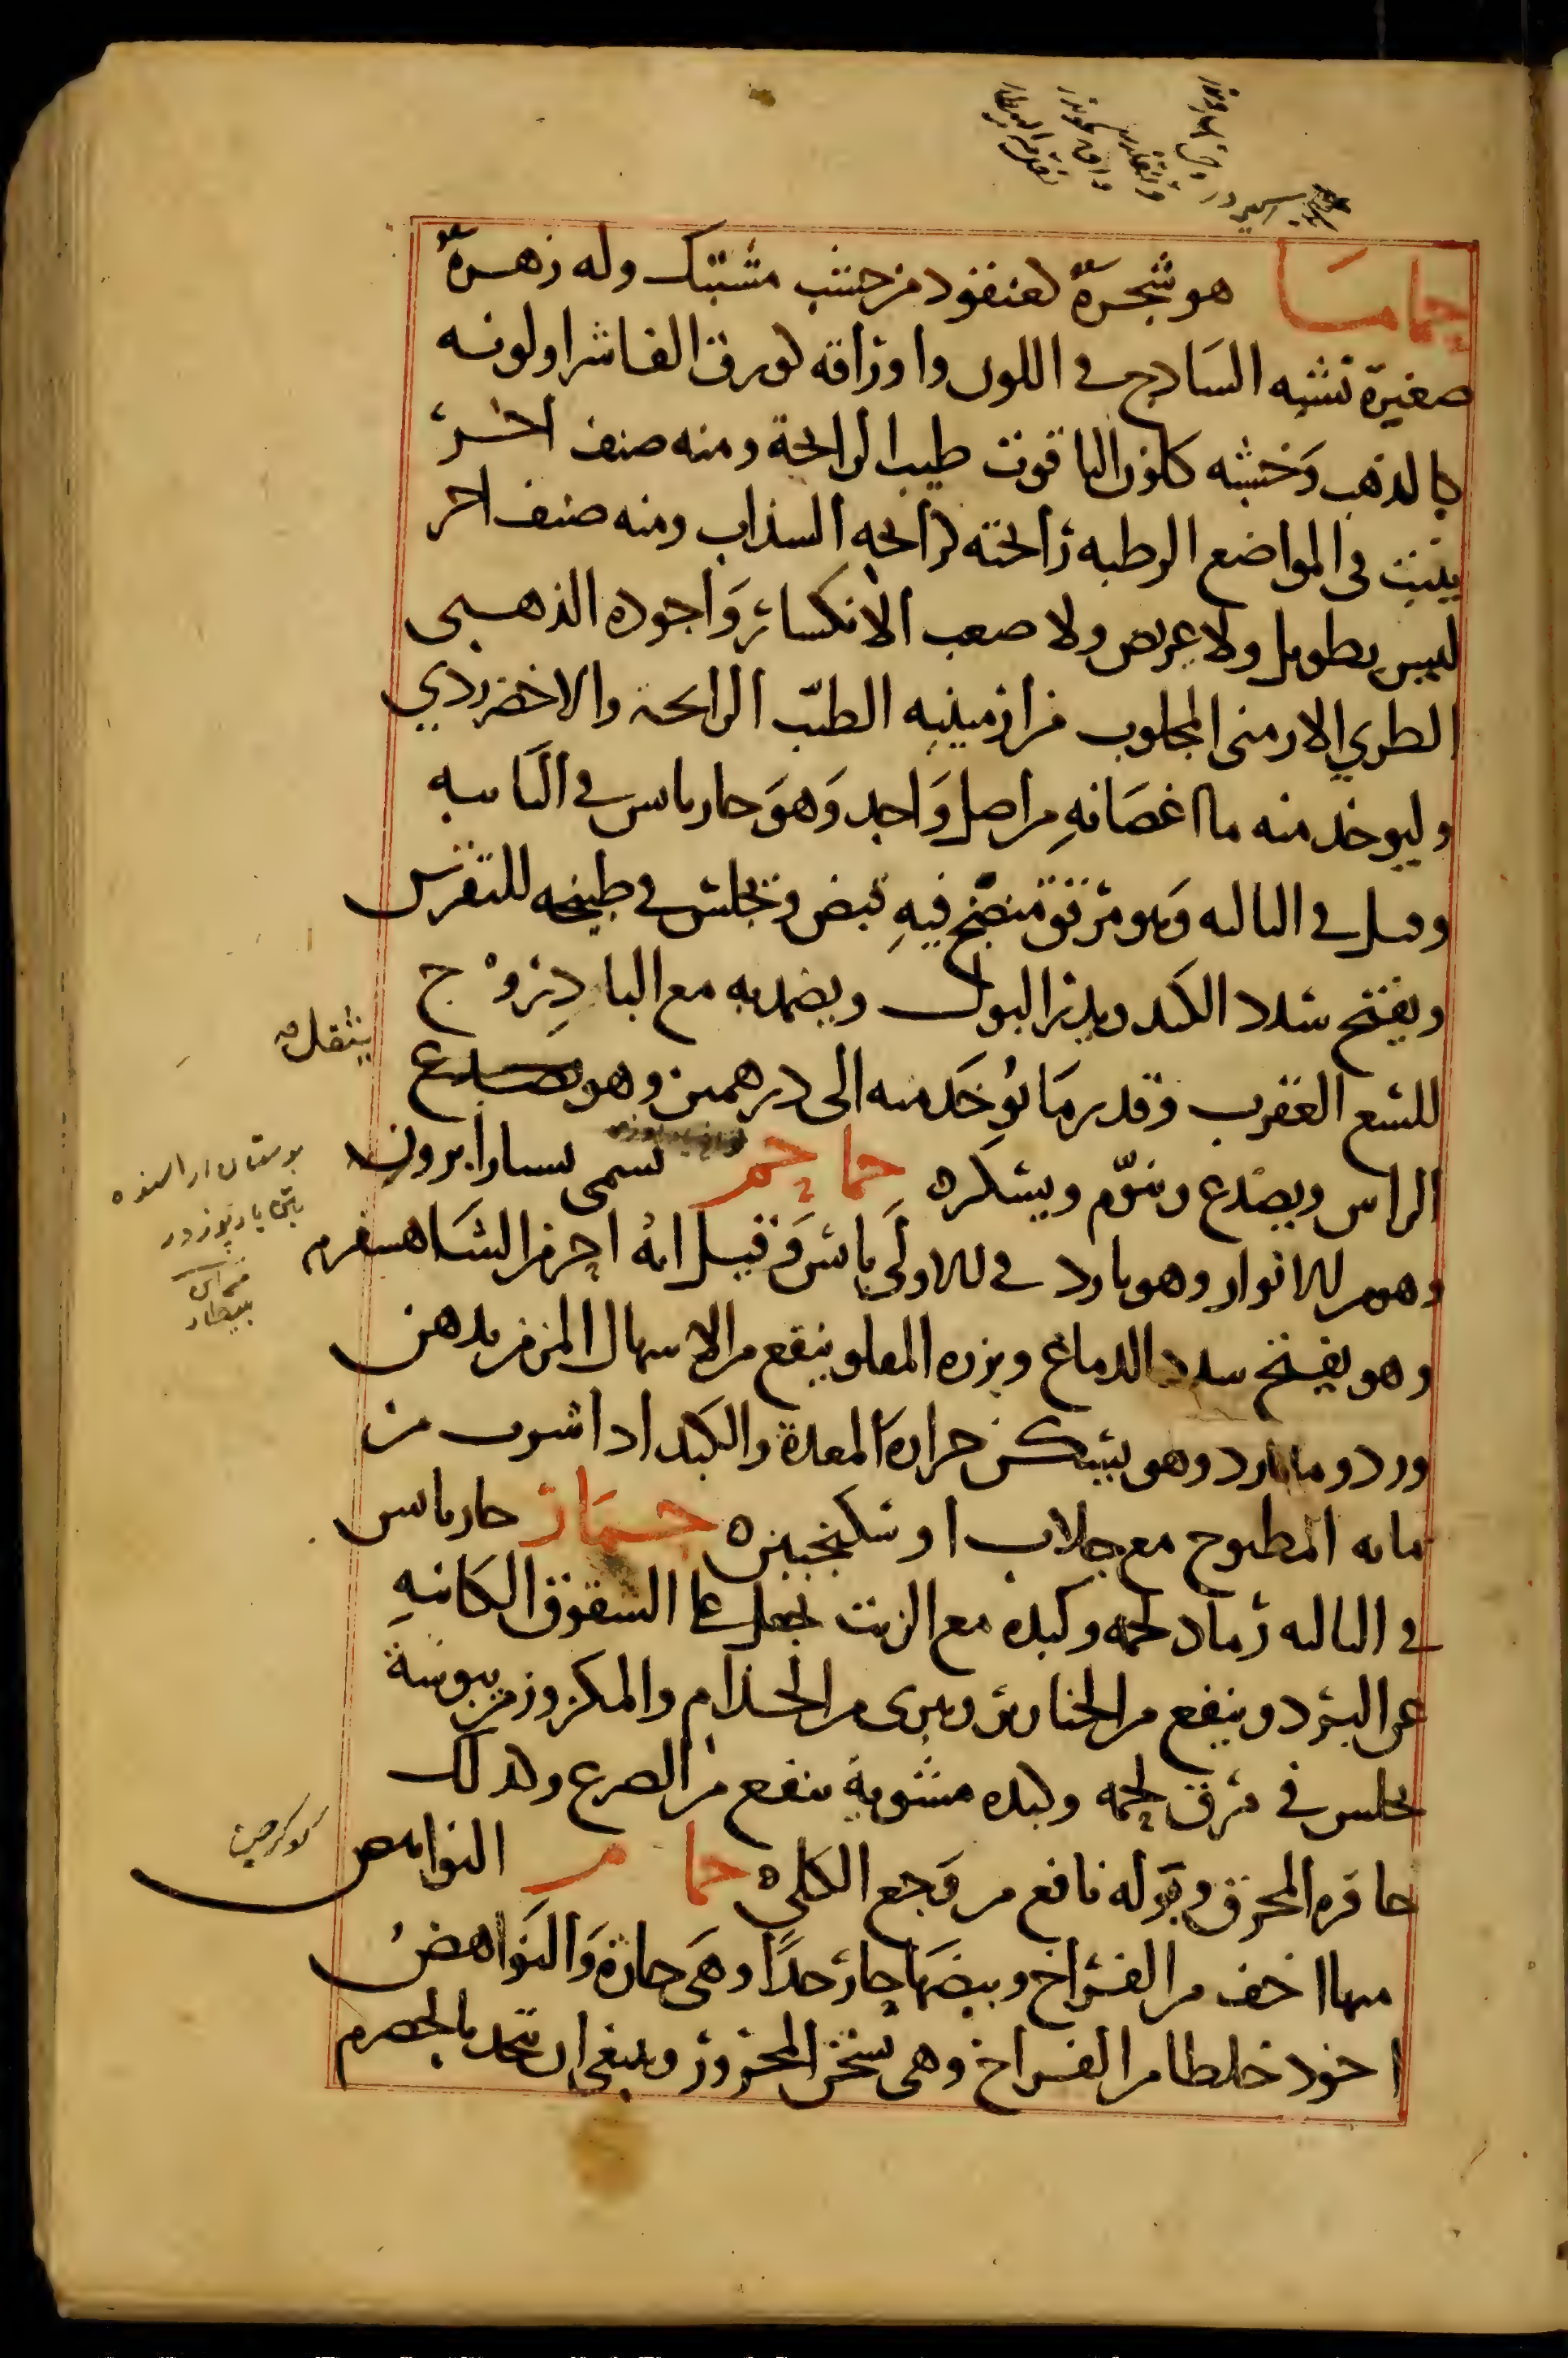 حماما هو شجرة كعنقود من خشب مشتبك وله زهرة
صغيرة تشبه السادج في اللون واوراقه كورق الفاشرا ولونه
كالذهب وخشبه كلون الياقوت طيب الرائحة ومنه صنف اخر
ينبت في المواضع الرطبه رائحته كرائحه السذاب ومنه صنف اخر
ليس بطويل ولا عريض ولا صعب الانكسار واجوده الذهبى
الطري الارمنى المجلوب من ارمينيه الطيّب الرائحة والاخضر ردي
وليوخذ منه ما اغصانهِ من اصل وَاحد وَهوَ حار يابس في الثانيه
وقيل في الثالثه وهو مرقق منضج فيهِ قبض ويجلس في طبيخه للنقرس
ويفتح سدد الكبد ويدر البول ويضمد به مع البادِروج
للسع العقرب وقدر مَا يُوخَذ منه الى درهمين وهو يصدع
يثقل
الراس ويصدع وينوّم ويسكره حماحم تسمى بستان ابروز
وهو مر الانوار وهو بارد في الاولَى يابس وَقيل انهُ احر من الشاهسفرم
وهو يفتح سدد الدماغ وبزره المقلو ينفع من الاسهال المزمن بدهن
ورد وما بارد وهو يسكن حرارة المعدة والكبد اذا شرب من
مائه المطبوخ مع جلاب او سكنجبين ه حمار حار يابس
في الثالثه رماد لحمه وكبده مع الزيت يجعل على الشقوق الكائنهِ
عن البرد وينفع من الخنازير ويبرى من الجذام والمكزوز من يبوسة
يجلس في مرق لحمه وكبده مشوية ينفع من الصرع وكذلك
حافره المحرق وبَوله نافع من وَجع الكلى ه حمام النواهض
منها اخف من الفراخ وبيضها حار جداً وهَى حارة وَالنَواهضُ
اجود خلطا من الفراخ وهى تسخن المحرور وينبغى ان تتخذ بالحصرم